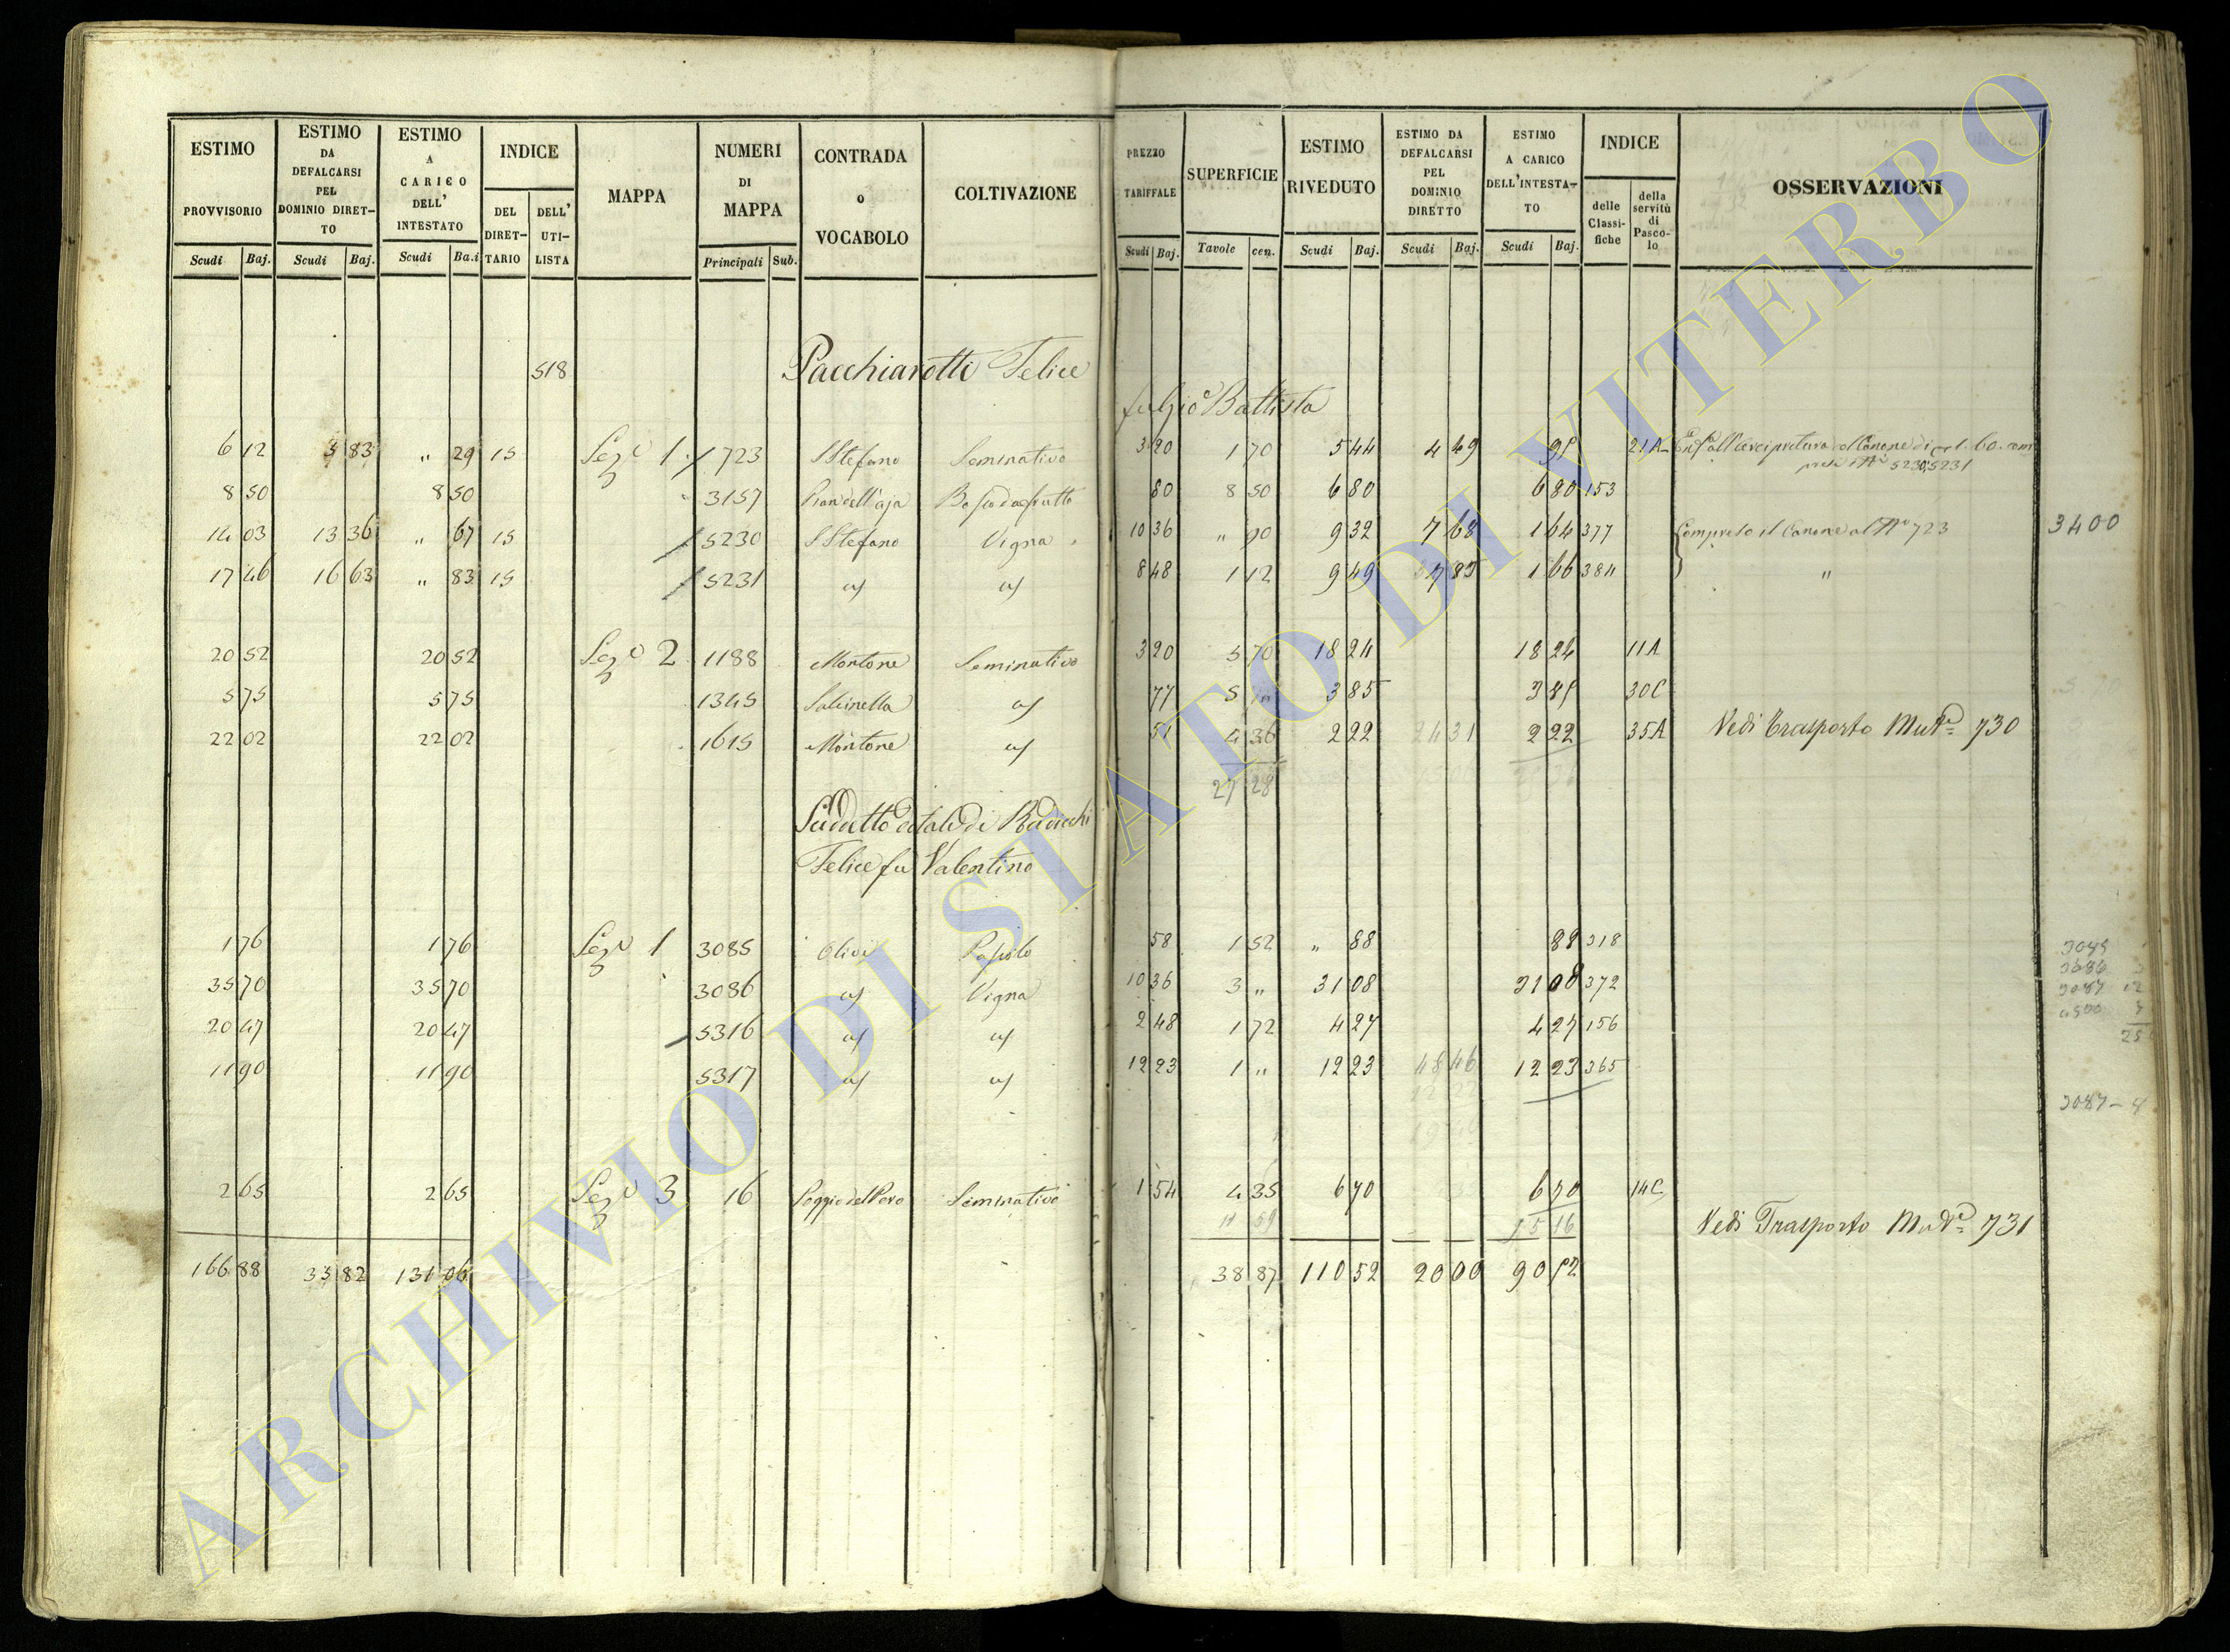 ESTIMO PROVVISORIO | ESTIMO DA DEFALCARSI PEL DOMINIO DIRET-TO | ESTIMO A CARICO DELL' INTESTATO | INDICE | MAPPA | NUMERI DI MAPPA | CONTRADA o VOCABOLO | COLTIVAZIONE | PREZZO TARIFFALE | SUPERFICIE | ESTIMO RIVEDUTO | ESTIMO DA DEFALCARSI PEL DOMINIO DIRETTO | ESTIMO A CARICO DELL'INTESTA-TO | INDICE | OSSERVAZIONI
DEL DIRET-TARIO | DELL' UTI-LISTA | delle Classi-fiche | della servitù di Pasco-lo
Scudi | Baj. | Scudi | Baj. | Scudi | Ba.i | Principali | Sub. | Scudi | Baj. | Tavole | cen. | Scudi | Baj. | Scudi | Baj. | Scudi | Baj.
518 Pacchiarotti Felice
fu Gio Battista
6 12 | 5 83 | " 29 | 15 | Seze 1 | 723 | S Stefano | Seminativo | 3 20 | 1 70 | 5 44 | 4 49 | 95 | 21A
5230, 5231
8 50 | 8 50 | 3157 | Pian dell'aja | 80 | 8 50 | 6 80 | 6 80 | 153
14 03 | 13 36 | " 67 | 15 | 5230 | S Stefano | Vigna | 10 36 | " 90 | 9 32 | 7 68 | 1 64 | 377 | Compreso il Canone al No 723 | 3400
17 46 | 16 63 | " 83 | 15 | 5231 | 8 48 | 1 12 | 9 49 | 7 83 | 1 66 | 384 | "
20 52 | 20 52 | Seze 2 | 1188 | Montone | Seminativo | 3 20 | 5 70 | 18 24 | 18 24 | 11A
5 75 | 5 75 | 1345 | Salcinella | 77 | 5 | 3 85 | 3 85 | 30C
22 02 | 22 02 | 1615 | Montone | 51 | 4 36 | 2 22 | 2 22 | 35A | Vedi Trasporto 730
27 28
Suddetto dotale di
Felice fu Valentino
1 76 | 1 76 | Seze 1 | 3085 | Olivi | Pascolo | 58 | 1 52 | " 88 | 88 | 318
35 70 | 35 70 | 3086 | Vigna | 10 36 | 3 " | 31 08 | 31 08 | 372
20 47 | 20 47 | 5316 | 2 48 | 1 72 | 4 27 | 4 27 | 156
11 90 | 11 90 | 5317 | 12 23 | 1 " | 12 23 | 12 23 | 365
3087
2 65 | 2 65 | Seze 3 | 16 | Poggio del Pero | Seminativo | 1 54 | 4 35 | 6 70 | 6 70 | 14C
11 59 | Vedi Trasporto 731
166 88 | 33 82 | 131 06 | 38 87 | 110 52 | 20 00 | 90 52
ARCHIVIO DI STATO DI VITERBO